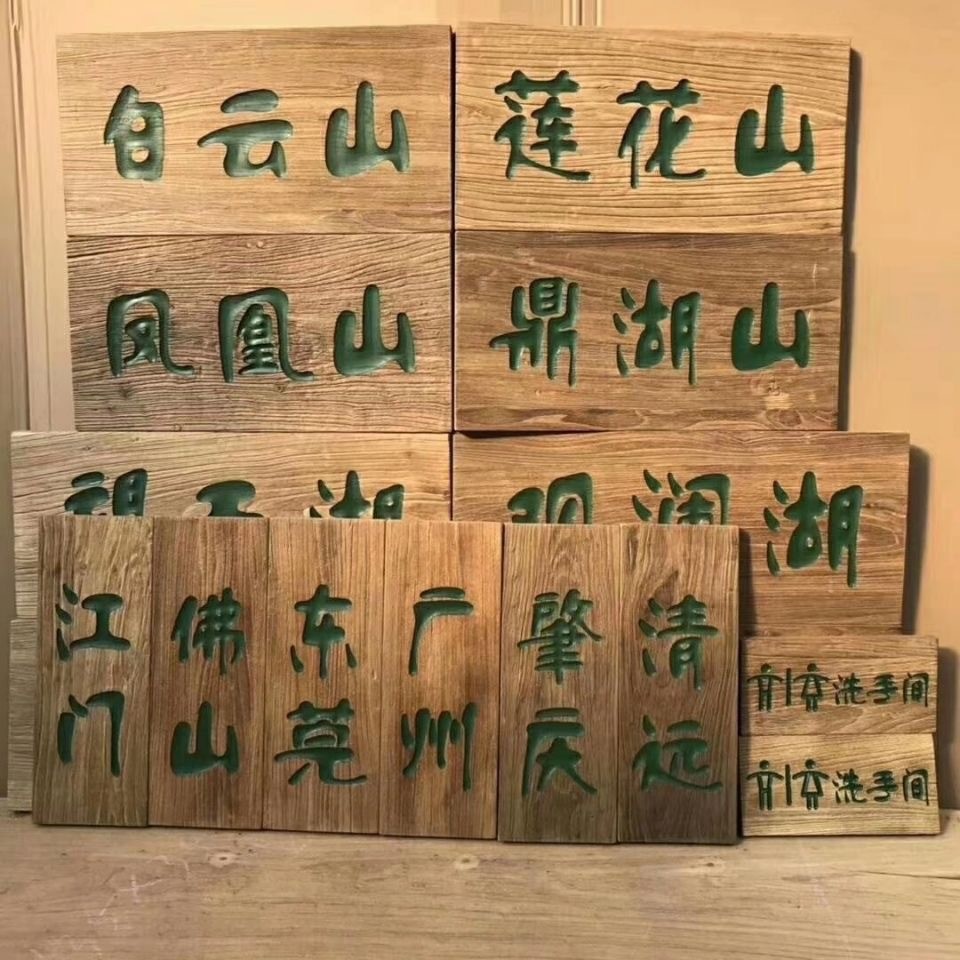 白云山
莲花山
凤凰山
鼎湖山
湖
观澜湖
江门
佛山
东莞
广州
肇庆
清远
洗手间
洗手间